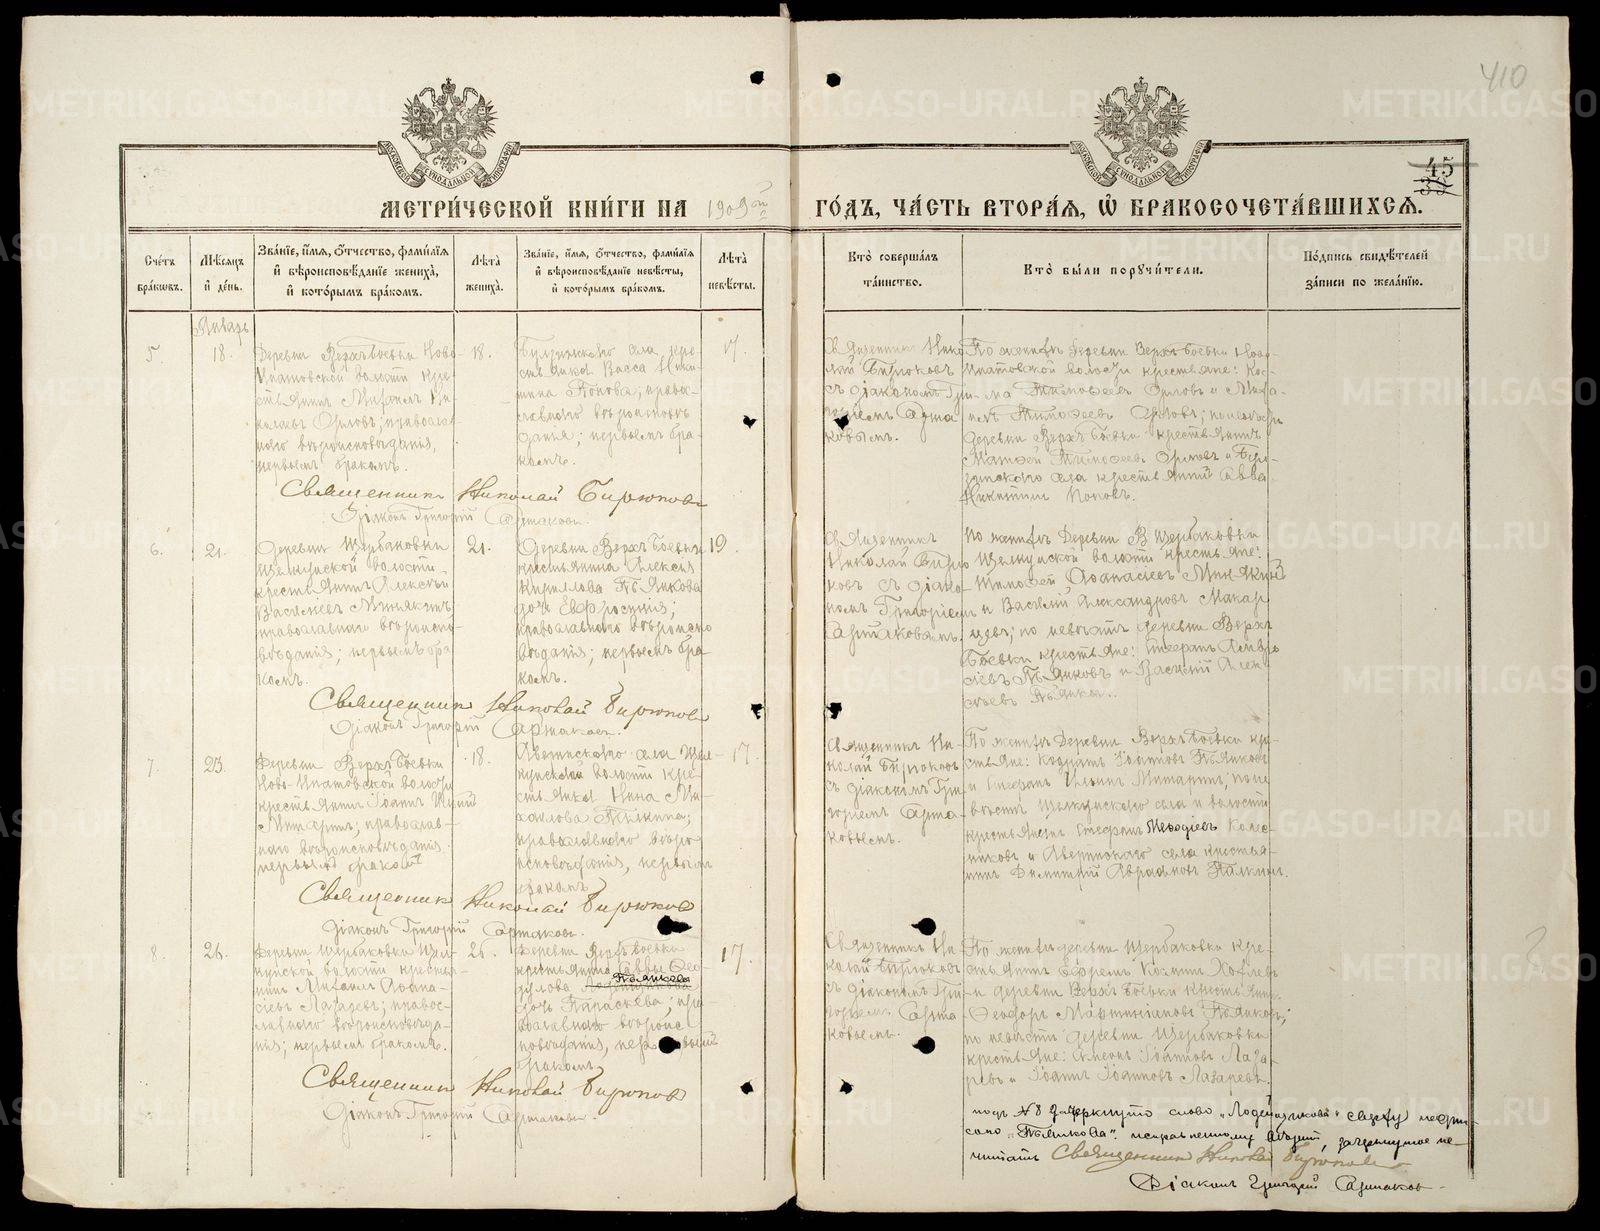 410
45
МЕТРИ́ЧЕСКОЙ КНИ́ГИ НА 1909ый
ГО́ДЪ, ЧА́СТЬ ВТОРА́Я, Ѽ БРАКОСОЧЕТА́ВШИХСЯ.
Сче́тъ бра́кѡвъ.
Мѣ́сяцъ и́ де́нь.
Зва́нїе, и́мя, ѻ́тчество, фами́лїя
и́ вѣроисповѣ́данїе жениха̀,
и́ кото́рымъ бра́комъ.
Лѣ́та жениха̀.
Зва́нїе, и́мя, ѻ́тчество, фами́лїя
и́ вѣроисповѣ́данїе невѣ́сты,
и́ кото́рымъ бра́комъ.
Лѣ́та невѣ́сты.
Кто̀ соверша́лъ
та́инство.
Кто̀ бы́ли порꙋчи́тели.
По́дпись свидѣ́телей
за́писи по жела́нїю.
Январь
5.
18.
Деревни Верхъ Боевки Ново-
Ипатовской волости кре-
стьянинъ Михаилъ Ни-
колаевъ Орловъ; православ-
наго вѣроисповѣданія,
первымъ бракомъ.
18.
села кре-
стьянка Васса Ники-
тина Попова; право-
славнаго вѣроисповѣ-
данія; первымъ бра-
комъ.
17.
Священникъ Нико-
лай Бирюковъ
съ діакономъ Гри-
горіемъ Сарта-
ковымъ.
По женихѣ деревни Верхъ Боевки Ново-
Ипатовской волости крестьяне: Кос-
ма Тимофеевъ Орловъ и Миха-
илъ Тимофеевъ Орловъ; по невѣстѣ
деревни Верхъ Боевки крестьянинъ
Матфей Тимофеевъ Орловъ и
села крестьянинъ Савва
Никитинъ Поповъ.
Священникъ Николай Бирюковъ
Діаконъ Григорій Сартаковъ.
6.
21.
Деревни Щербаковки
Щелкунской волости
крестьянинъ Алексѣй
Васильевъ Минякинъ,
православнаго вѣроиспо-
вѣданія; первымъ бра-
комъ.
21.
Деревни Верхъ Боевки
крестьянина Алексѣя
Кириллова Пьянкова
дочь Евфросинія;
православнаго вѣроиспо-
вѣданія; первымъ бра-
комъ.
19.
Священникъ
Николай Бирю-
ковъ съ діако-
номъ Григоріемъ
Сартаковымъ.
По женихѣ Деревни Щербаковки
Щелкунской волости крестьяне:
Тимофей Афанасіевъ Минякинъ
и Василій Александровъ Макар
цевъ; по невѣстѣ деревни Верхъ
Боевки крестьяне: Стефанъ Амвро
сіевъ Пьянковъ и Василій Алек-
сѣевъ Пьянковъ.
Священникъ Николай Бирюковъ
Діаконъ Григорій Сартаковъ.
7.
23.
Деревни Верхъ Боевки
Ново-Ипатовской волости
крестьянинъ Іоаннъ
Митаринъ; православ-
наго вѣроисповѣданія
первымъ бракомъ
18.
Аверинскаго села Щел-
кунской волости кре-
стьянка Нина Ми-
хаилова Палкина;
православнаго вѣро-
исповѣданія, первымъ
бракомъ
17.
Священникъ Ни-
колай Бирюковъ
съ діакономъ Гри-
горіемъ Сарта-
ковымъ.
По женихѣ Деревни Верхъ Боевки кре-
стьяне: Кодратъ Іоанновъ Пьянковъ
и Стефанъ Ильинъ Митаринъ; по не-
вѣстѣ Щелкунскаго села и волости
крестьянинъ Стефанъ Меѳодіевъ Колес-
никовъ и Аверинскаго села крестья-
нинъ Димитрій Авраамовъ Палкинъ.
Священникъ Николай Бирюковъ
Діаконъ Григорій Сартаковъ.
8.
26.
Деревни Щербаковки Щел-
кунской волости крестья-
нинъ Михаилъ Афана-
сіевъ Лазаревъ; правос-
лавнаго вѣроисповѣда-
нія; первымъ бракомъ.
26.
Деревни Верхъ Боевки
крестьянина Саввы Ѳео-
дулова Пьянкова
дочь Параскева; пра-
вославнаго вѣроис-
повѣданія, первымъ
бракомъ
17.
Священникъ Ни-
колай Бирюковъ
съ діакономъ Гри-
горіемъ Сарта-
ковымъ.
По женихѣ деревни Щербаковки кре-
стьянинъ Ефремъ Козминъ
и деревни Верхъ Боевки крестьянинъ
Ѳеодоръ Мартиніановъ Пьянковъ;
по невѣстѣ деревни Щербаковки
крестьяне: Симеонъ Іоанновъ Лаза-
ревъ и Іоаннъ Іоанновъ Лазаревъ.
Священникъ Николай Бирюковъ
Діаконъ Григорій Сартаковъ.
подъ № 8 зачеркнуто слово сверху надпи-
сано "Пьянкова". исправленному вѣрить, зачеркнутое не-
читать Священникъ Николай Бирюковъ
Діаконъ Григорій Сартаковъ
METRIKI.GASO-URAL.RU